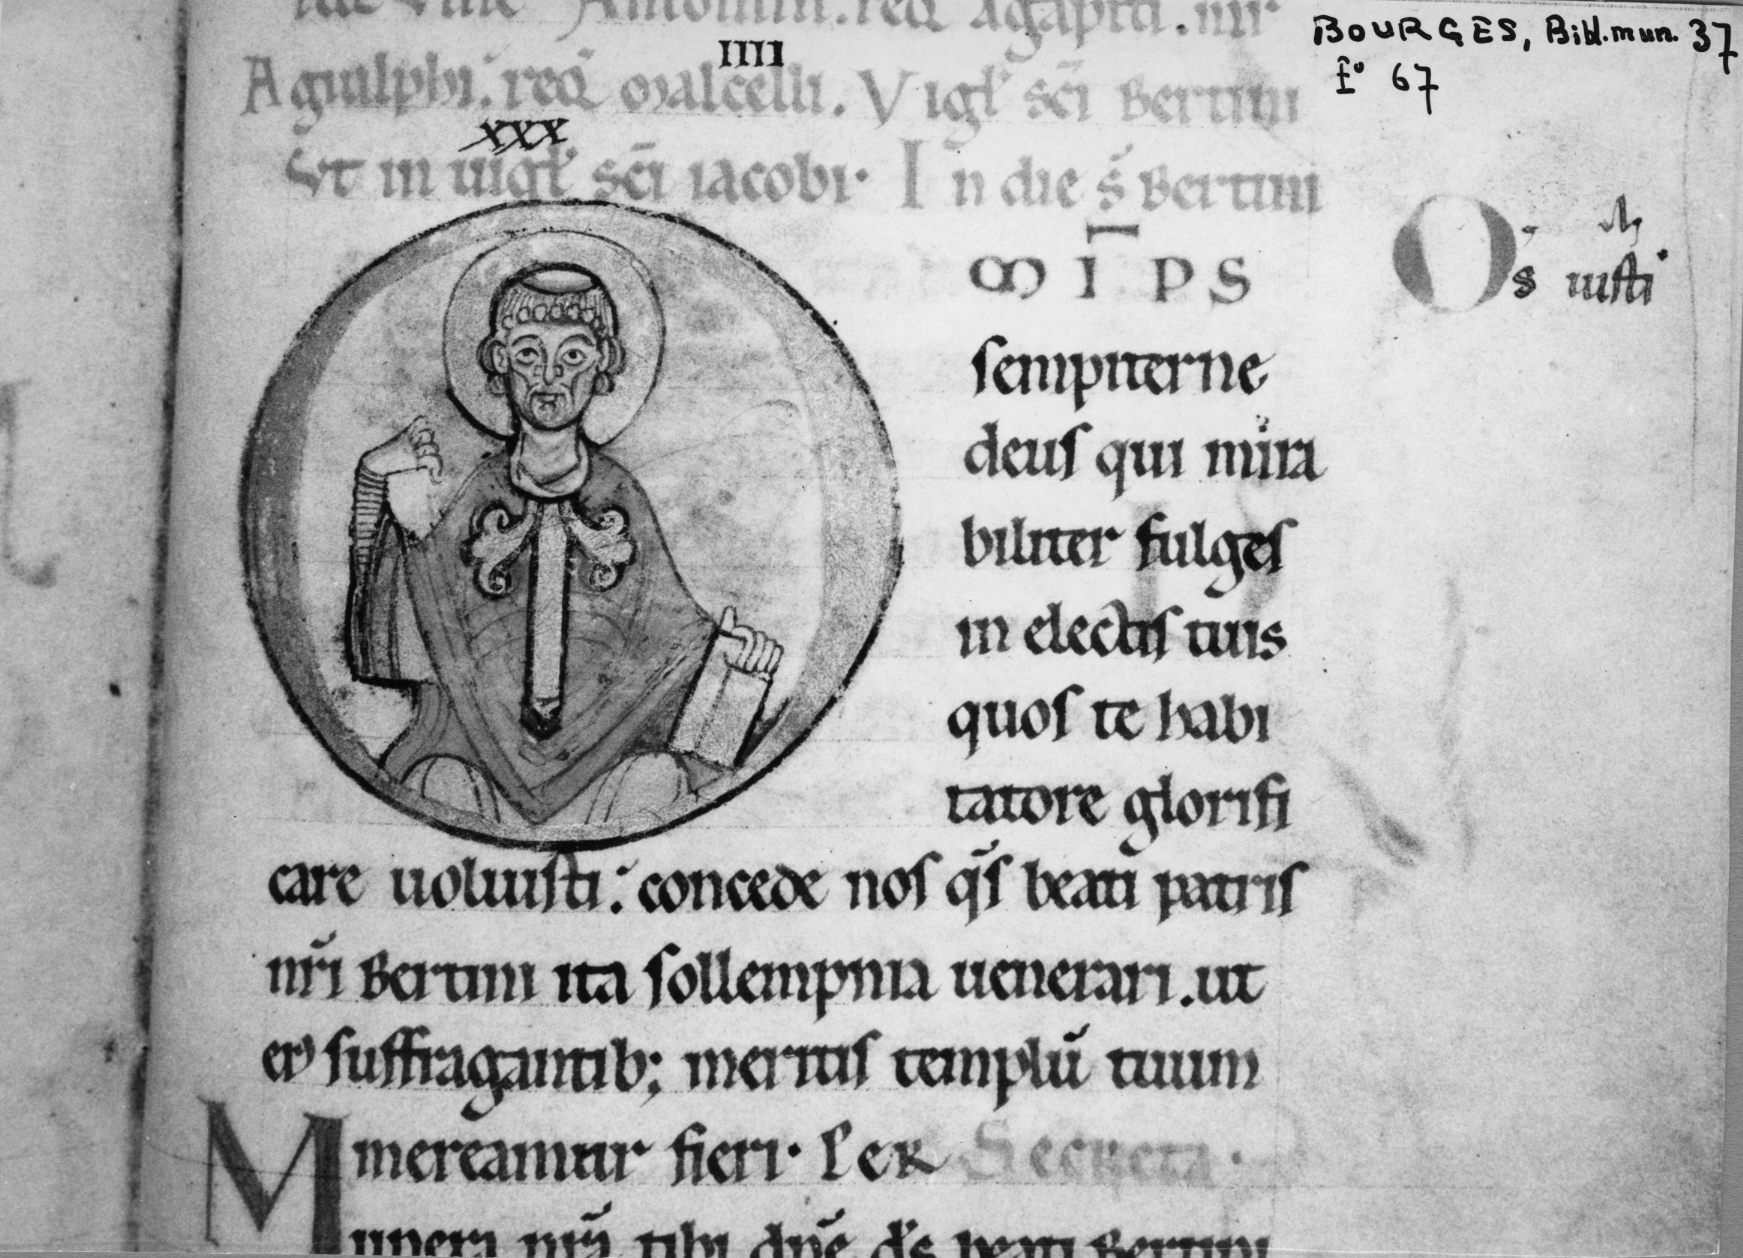 Antonini. req̄ Agapiti. iiii
Agiulphi. req̄ Marcelli. Vigł sc̄i Bertini
IIII
Vt in uigł sc̄i iacobi. In die s̄ Bertini
xxx
M ī P S
sempiterne
deus qui mira
biliter fulges
in electis tuis
quos te habi
tatore glorifi
care uoluisti: concede nos q̄s beati patris
nr̄i Bertini ita sollempnia uenerari. ut
ei suffragantib; meritis templū tuum
mereamur fieri. Per Secreta.
Munera nr̄a tibi dn̄e ds̄ beati Bertini
Os iusti
BOURGES, Bibl. mun. 37
f° 67